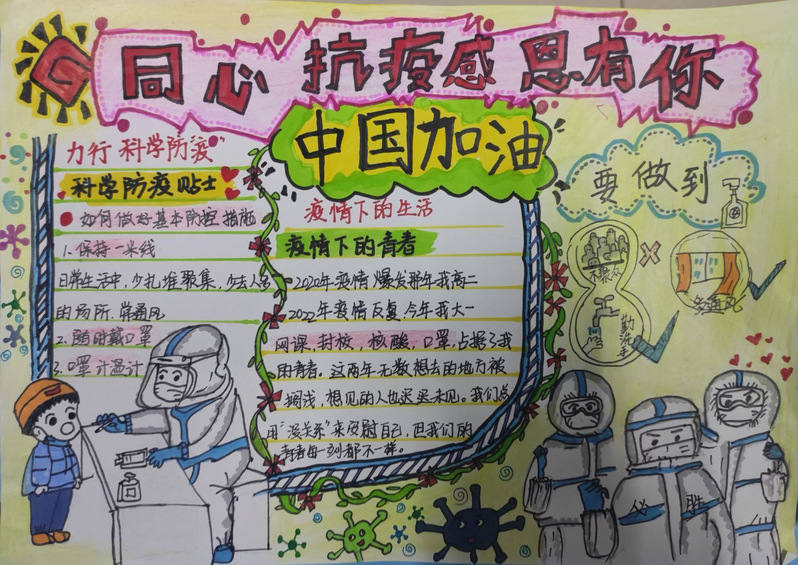 同心 抗疫感恩有你
中国加油
力行 科学防疫"
科学防疫贴士
如何做好基本防控措施
1.保持一米线
日常生活中,少扎堆聚集,少去人多
的场所.常通风
2.随时戴口罩
3.口罩 计温计
疫情下的生活
疫情下的青春
2020年疫情 爆发那年我高二
2022年疫情反复,今年我大一
网课,封校,核酸,口罩,占据了我
的青春.这两年无数想去的地方被
搁浅,想见的人也迟迟未见.我们总
用"没关系"来安慰自己,但我们的
青春每一刻都不一样。
要做到
不聚众
多通风
勤洗手
必
胜